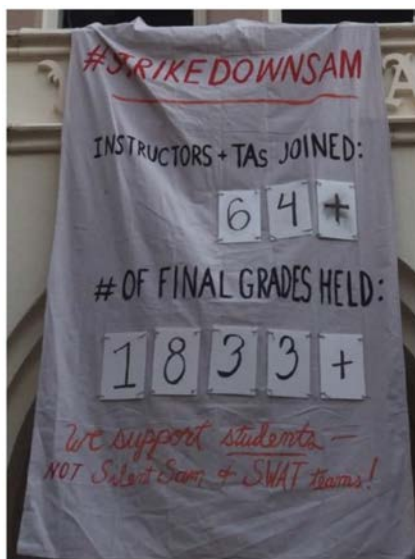 #STRIKEDOWNSAM
INSTRUCTORS + TAS JOINED:
64+
# OF FINAL GRADES HELD:
1833+
We support students —
NOT Silent Sam & SWAT teams!
A